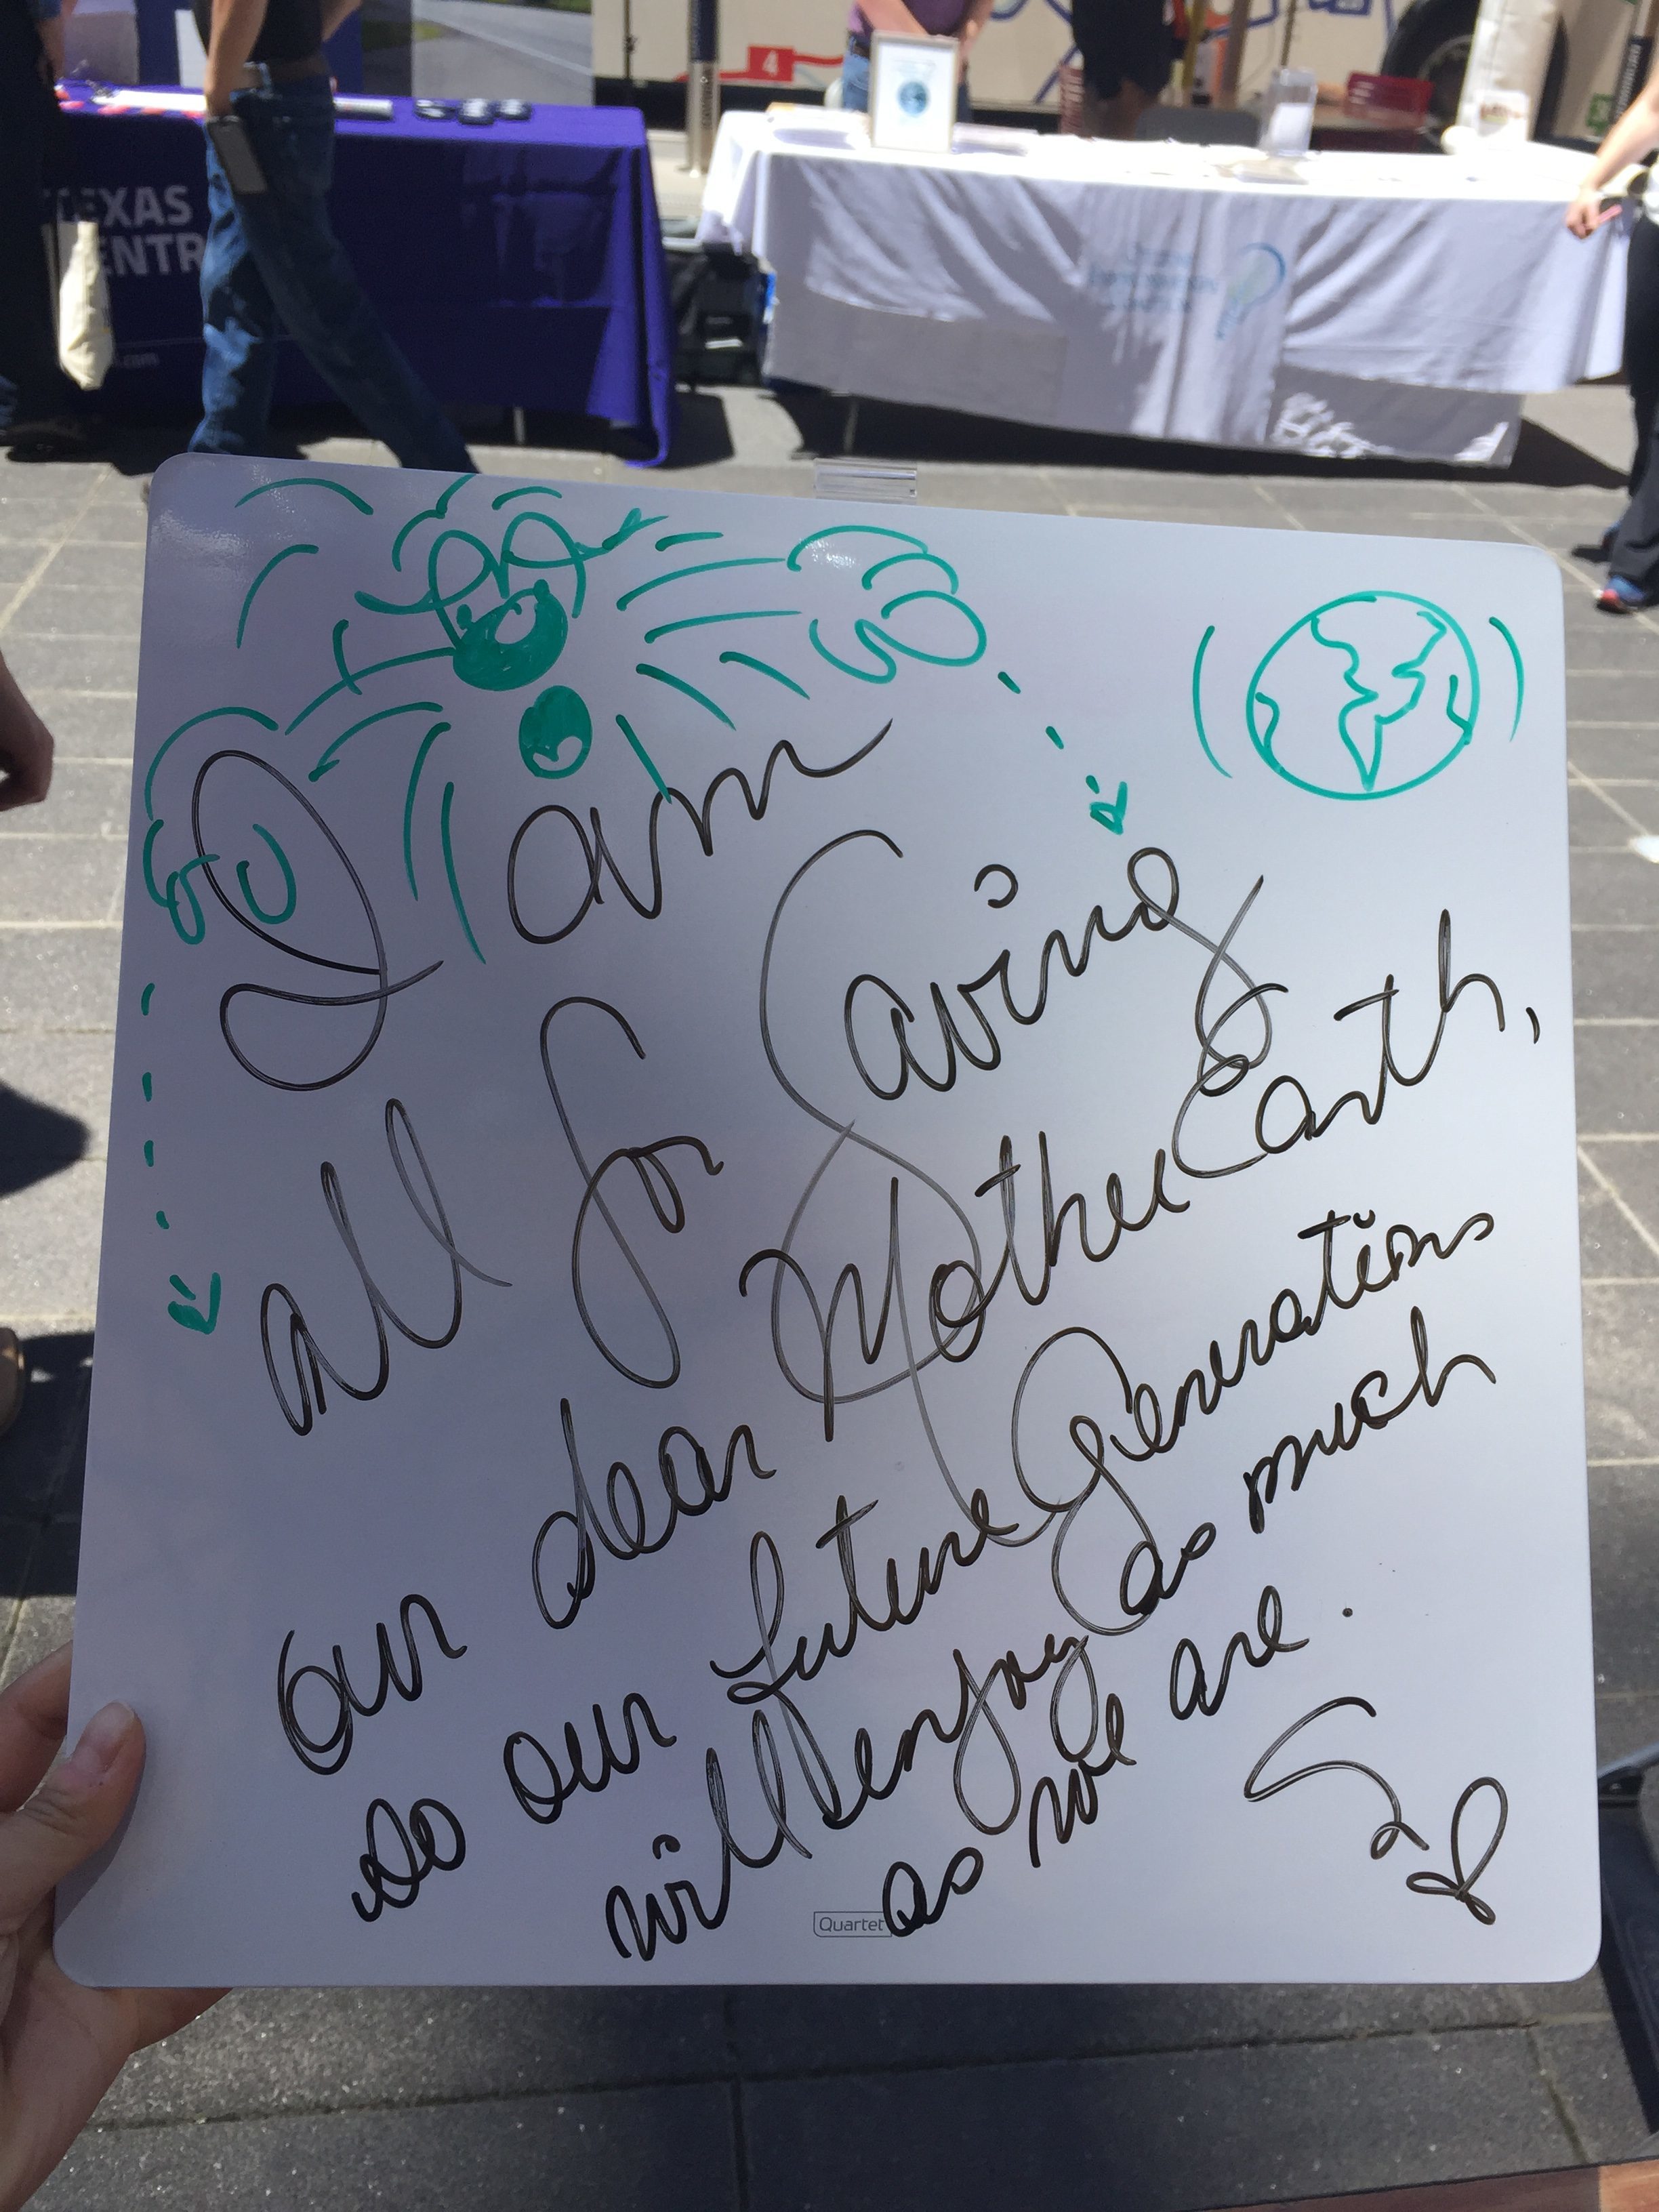 TEXAS
4
I am
all for Saving
our dear Mother Earth,
so our future Generations
will enjoy as much
as we are.
Quartet